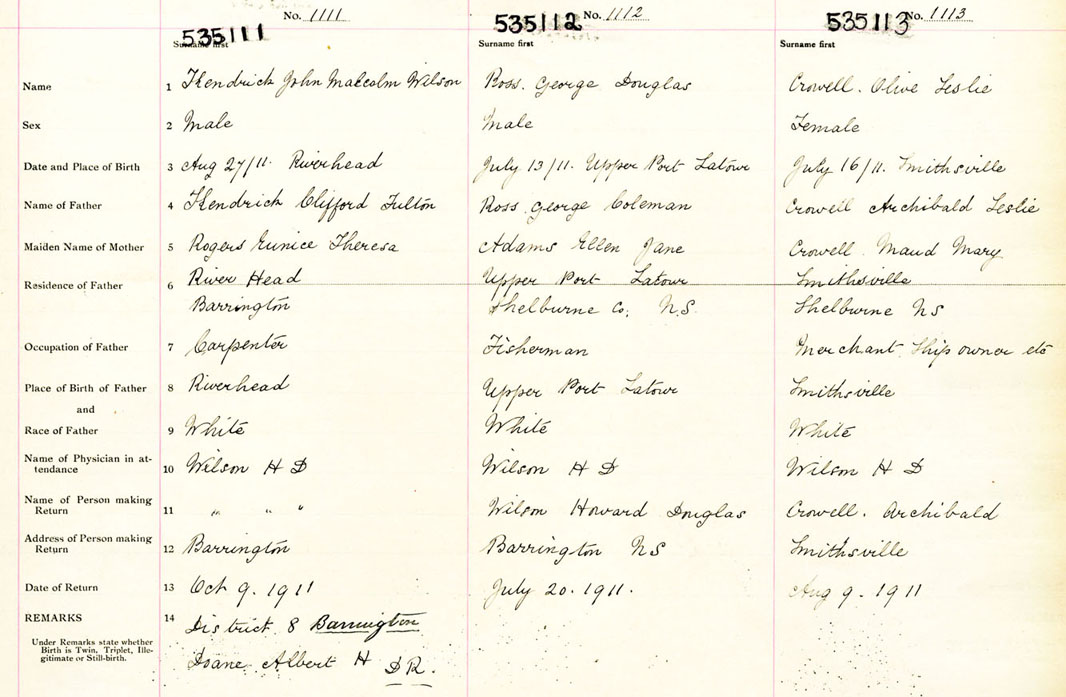 No. 1111
No. 1112
No. 1113
535111
535112
535113
Surname first
Surname first
Surname first
Name 1 Kendrick John Malcolm Wilson
Ross. George Douglas
Crowell. Olive Leslie
Sex 2 Male
Male
Female
Date and Place of Birth 3 Aug 27/11. Riverhead
July 13/11. Upper Port Latour
July 16/11. Smithsville
Name of Father 4 Kendrick Clifford Fulton
Ross. George Coleman
Crowell Archibald Leslie
Maiden Name of Mother 5 Rogers Eunice Theresa
Adams Ellen Jane
Crowell. Maud Mary
Residence of Father 6 River Head
Barrington
Upper Port Latour
Shelburne Co; N.S.
Smithsville
Shelburne NS
Occupation of Father 7 Carpenter
Fisherman
Merchant Ship owner etc
Place of Birth of Father 8 Riverhead
Upper Port Latour
Smithsville
and
Race of Father 9 White
White
White
Name of Physician in at-
tendance 10 Wilson H D
Wilson H D
Wilson H D
Name of Person making
Return 11 " " "
Wilson Howard Douglas
Crowell. Archibald
Address of Person making
Return 12 Barrington
Barrington NS
Smithsville
Date of Return 13 Oct 9. 1911
July 20. 1911.
Aug 9. 1911
REMARKS 14 District 8 Barrington
Under Remarks state whether
Birth is Twin, Triplet, Ille-
gitimate or Still-birth.
Doane Albert H D R.